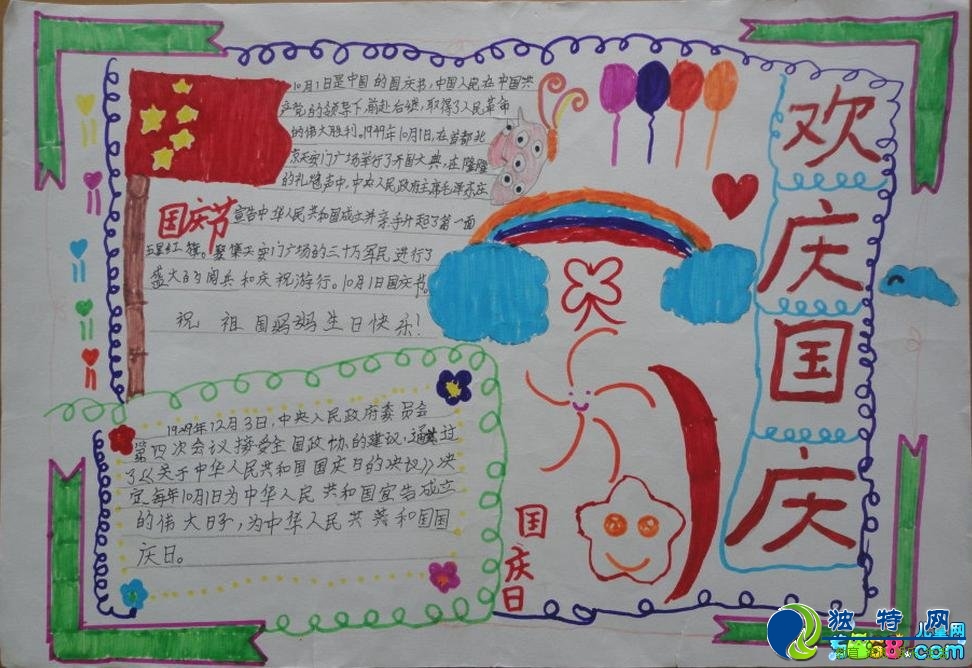 10月1日是中国的国庆节,中国人民在中国共
产党的领导下前赴后继,取得了人民革命
的伟大胜利。1949年10月1日,在首都北
京天安门广场举行了开国大典,在隆隆
的礼炮声中,中央人民政府主席毛泽东庄
国庆节
宣告中华人民共和国成立并亲手升起了第一面
五星红旗。聚集天安门广场的三十万军民进行了
盛大的阅兵和庆祝游行。10月1日国庆节。
祝祖国妈妈生日快乐!
1949年12月3日,中央人民政府委员会
第四次会议接受全国政协的建议,通过
了《关于中华人民共和国国庆日的决议》决
定每年10月1日为中华人民共和国宣告成立
的伟大日子,为中华人民共和国国
庆日。
国
庆
日
欢
庆
国
庆
独特网
儿童网
.com